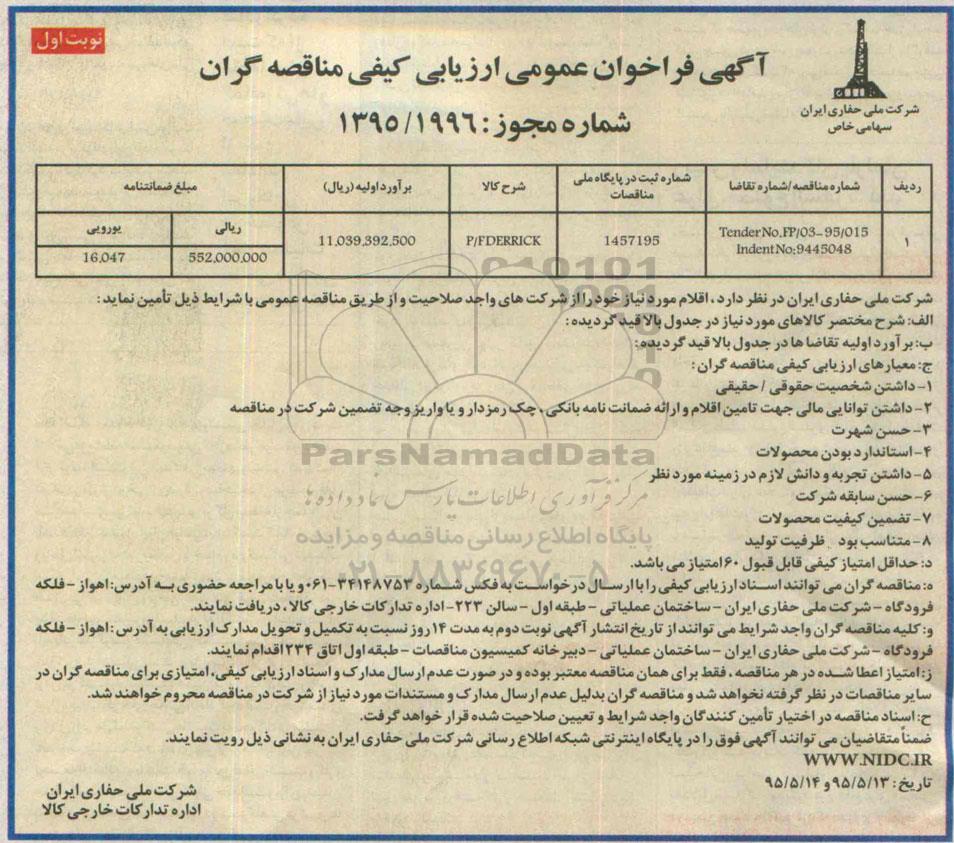 نوبت اول
شرکت ملی حفاری ایران
سهامی خاص
آگهی فراخوان عمومی ارزیابی کیفی مناقصه گران
شماره مجوز: ۱۳۹۵/۱۹۹۶
ردیف | شماره مناقصه/شماره تقاضا | شماره ثبت در پایگاه ملی مناقصات | شرح کالا | برآورد اولیه (ریال) | مبلغ ضمانتنامه
ریالی | یورویی
۱ | Tender No.FP/03-95/015 Indent No:9445048 | 1457195 | P/FDERRICK | 11,039,392,500 | 552,000,000 | 16,047
شرکت ملی حفاری ایران در نظر دارد، اقلام مورد نیاز خود را از شرکت های واجد صلاحیت و از طریق مناقصه عمومی با شرایط ذیل تأمین نماید:
الف: شرح مختصر کالاهای مورد نیاز در جدول بالا قید گردیده:
ب: برآورد اولیه تقاضا ها در جدول بالا قید گردیده:
ج: معیارهای ارزیابی کیفی مناقصه گران:
۱- داشتن شخصیت حقوقی / حقیقی
۲- داشتن توانایی مالی جهت تامین اقلام و ارائه ضمانت نامه بانکی، چک رمزدار و یا واریز وجه تضمین شرکت در مناقصه
۳- حسن شهرت
۴- استاندارد بودن محصولات
۵- داشتن تجربه و دانش لازم در زمینه مورد نظر
۶- حسن سابقه شرکت
۷- تضمین کیفیت محصولات
۸- متناسب بود ظرفیت تولید
د: حداقل امتیاز کیفی قابل قبول ۶۰ امتیاز می باشد.
ه: مناقصه گران می توانند اسناد ارزیابی کیفی را با ارسال درخواست به فکس شماره ۳۴۱۴۸۷۵۳-۰۶۱ و یا با مراجعه حضوری به آدرس: اهواز - فلکه
فرودگاه - شرکت ملی حفاری ایران - ساختمان عملیاتی - طبقه اول - سالن ۲۲۳- اداره تدارکات خارجی کالا، دریافت نمایند.
و: کلیه مناقصه گران واجد شرایط می توانند از تاریخ انتشار آگهی نوبت دوم به مدت ۱۴ روز نسبت به تکمیل و تحویل مدارک ارزیابی به آدرس: اهواز - فلکه
فرودگاه - شرکت ملی حفاری ایران - ساختمان عملیاتی - دبیرخانه کمیسیون مناقصات - طبقه اول اتاق ۲۳۴ اقدام نمایند.
ز: امتیاز اعطا شده در هر مناقصه، فقط برای همان مناقصه معتبر بوده و در صورت عدم ارسال مدارک و اسناد ارزیابی کیفی، امتیازی برای مناقصه گران در
سایر مناقصات در نظر گرفته نخواهد شد و مناقصه گران بدلیل عدم ارسال مدارک و مستندات مورد نیاز از شرکت در مناقصه محروم خواهند شد.
ح: اسناد مناقصه در اختیار تأمین کنندگان واجد شرایط و تعیین صلاحیت شده قرار خواهد گرفت.
ضمناً متقاضیان می توانند آگهی فوق را در پایگاه اینترنتی شبکه اطلاع رسانی شرکت ملی حفاری ایران به نشانی ذیل رویت نمایند.
WWW.NIDC.IR
تاریخ: ۹۵/۵/۱۳ و ۹۵/۵/۱۴
شرکت ملی حفاری ایران
اداره تدارکات خارجی کالا
ParsNamadData
مرکز فرآوری اطلاعات پارس نماد داده ها
پایگاه اطلاع رسانی مناقصه و مزایده
۰۲۱-۸۸۳۴۹۶۷۰-۵